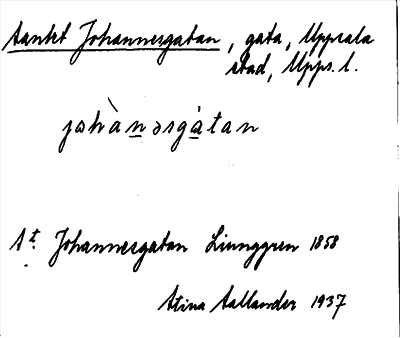 Sankt Johannesgatan, gata, Uppsala
stad, Upps. l.
johànəsgàtan
St Johannesgatan Linnggren 1858
Stina Hallander 1937